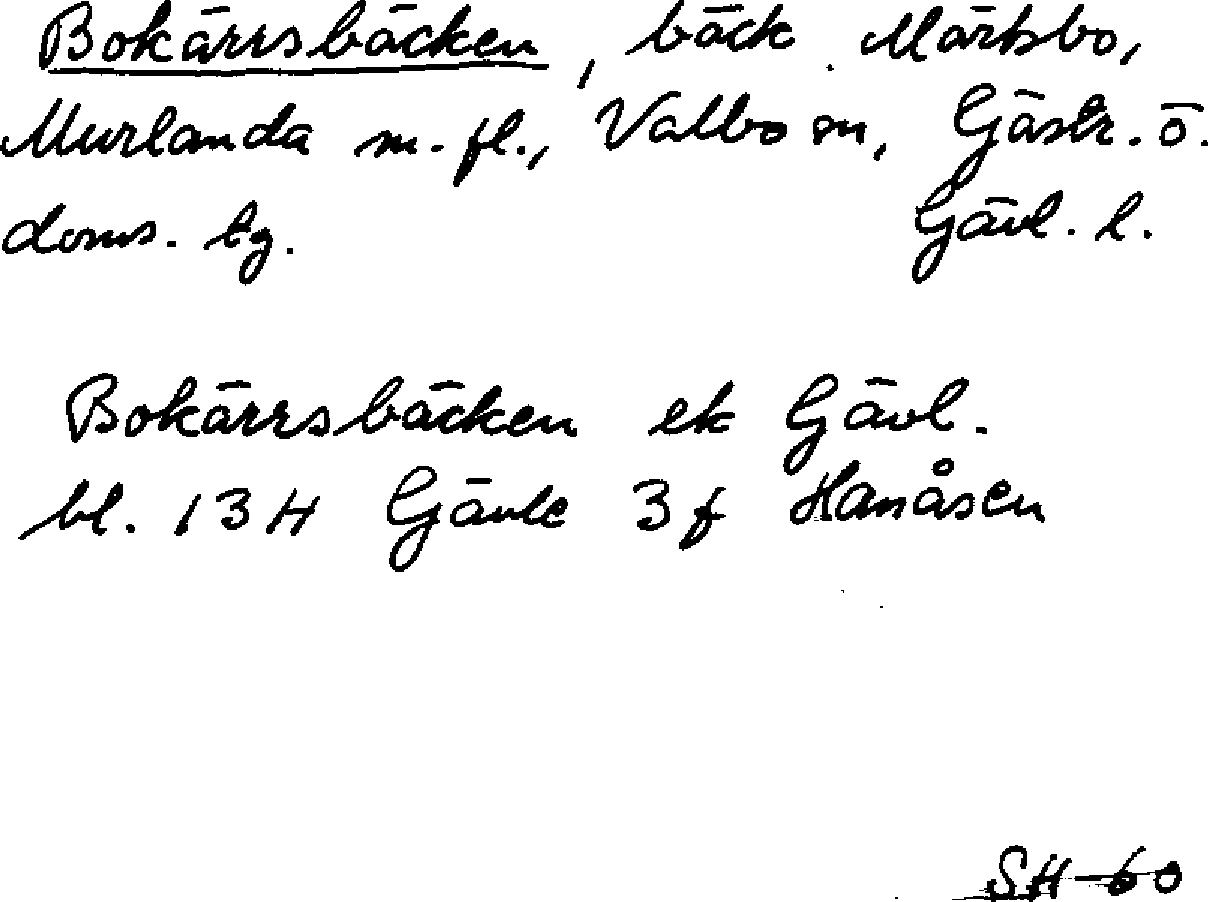 Bokärrsbäcken, bäck Mårtsbo,
Murlanda m.fl., Valbo sn, Gästr. ö.
doms. tg. Gävl. l.
Bokärrsbäcken ek Gävl.
bl. 13H Gävle 3f Hanåsen
SH-60